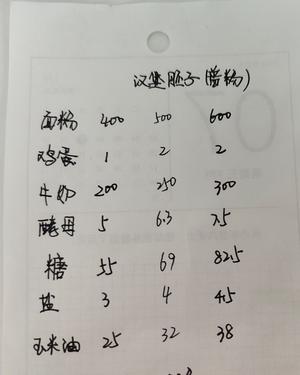 汉堡胚子(普粉)
面粉 400 500 600
鸡蛋 1 2 2
牛奶 200 250 300
酵母 5 6.3 7.5
糖 55 69 82.5
盐 3 4 4.5
玉米油 25 32 38